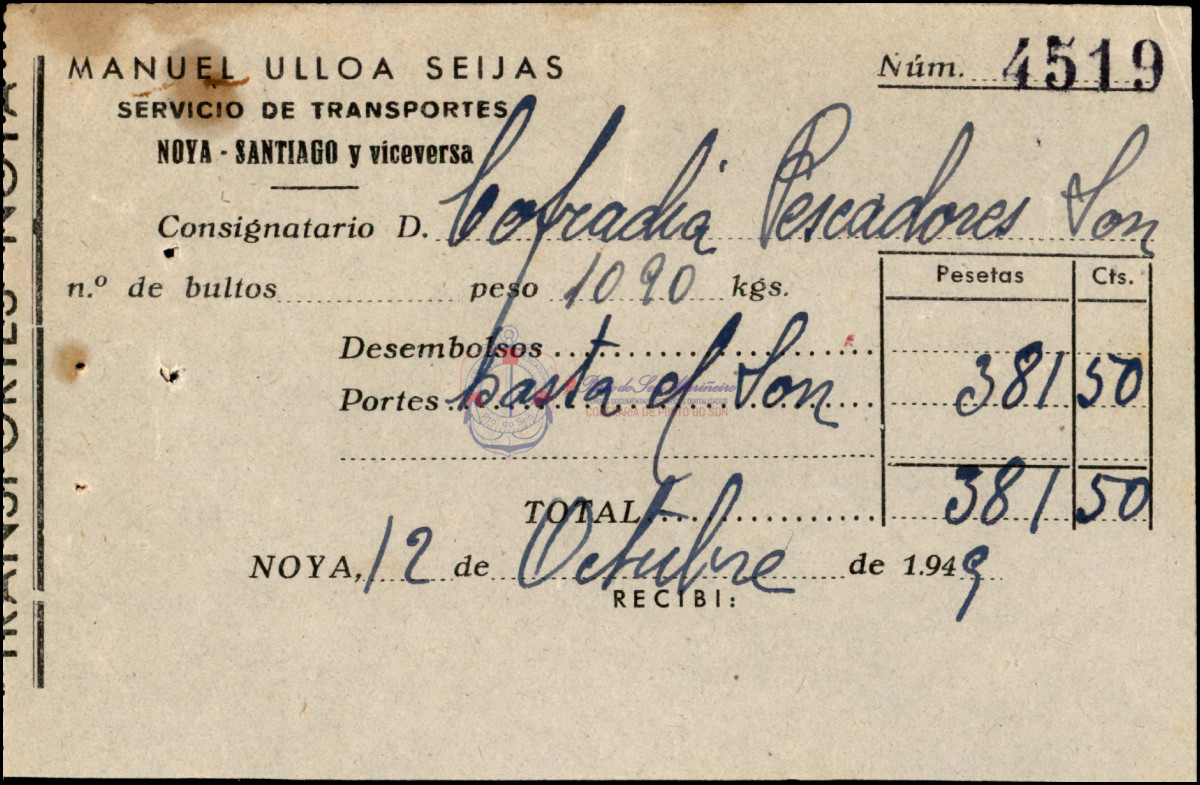 MANUEL ULLOA SEIJAS
Núm. 4519
SERVICIO DE TRANSPORTES
NOYA - SANTIAGO y viceversa
Consignatario D. Cofradia Pescadores Son
n.º de bultos peso 1090 kgs.
Pesetas Cts.
Desembolsos
Portes hasta el Son 381 50
CONFRARIA DE PORTO DO SON
TOTAL 381 50
NOYA, 12 de Octubre de 1.949
RECIBI:
TRANSPORTES NOYA